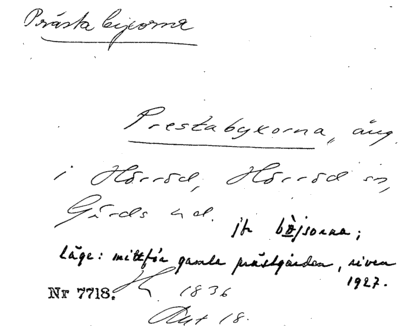 Prästabyxorna
Prestabyxorna, äng
i Hörröd, Hörröd sn,
Gärds hd. jfr böjsorna;
Läge: mittför gamla prästgården, riven
1927.
Nr 7718. 1836
Akt 18.